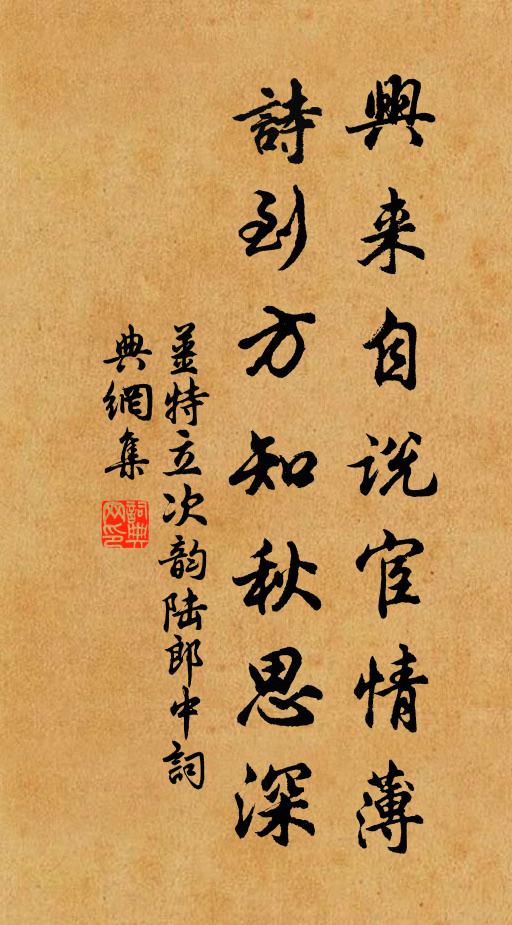 興来自説宦情薄
詩到方知秋思深
薑特立次韵陆郎中詞
典網集
詞典
网印